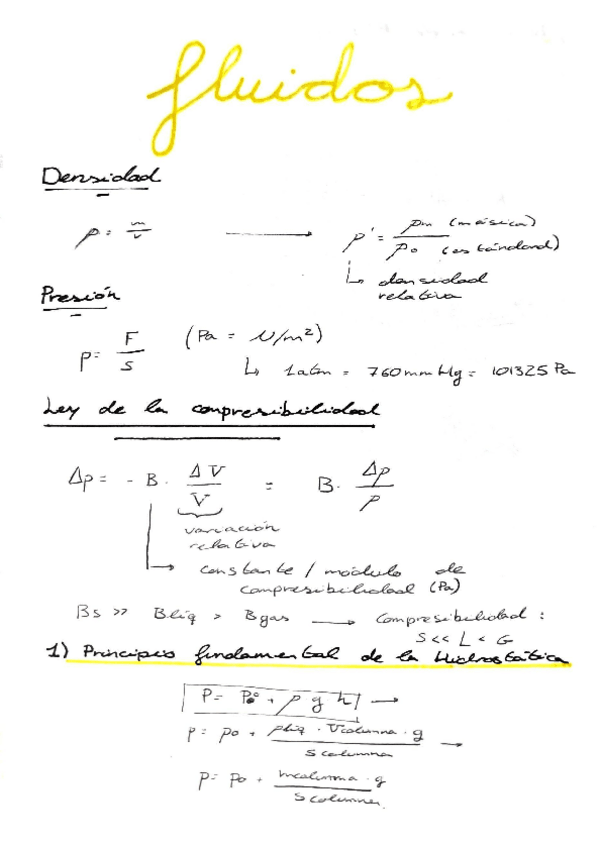 fluidos
Densidad
ρ = m/v ⟶ ρ' = ρm (másica) / ρo (estándard)
↳ densidad
relativa
Presión
p = F/S (Pa = N/m²)
↳ 1atm = 760mmHg = 101325 Pa
Ley de la compresibilidad
Δp = - B · ΔV/V = B · Δρ/ρ
variación
relativa
→ constante / módulo de
compresibilidad (Pa)
Bs >> Bliq > Bgas → Compresibilidad :
S << L < G
1) Principio fundamental de la Hidrostática
P = Po + ρ g h →
p = po + ρliq · Vcolumna · g / S columna →
p = po + mcolumna · g / S columna